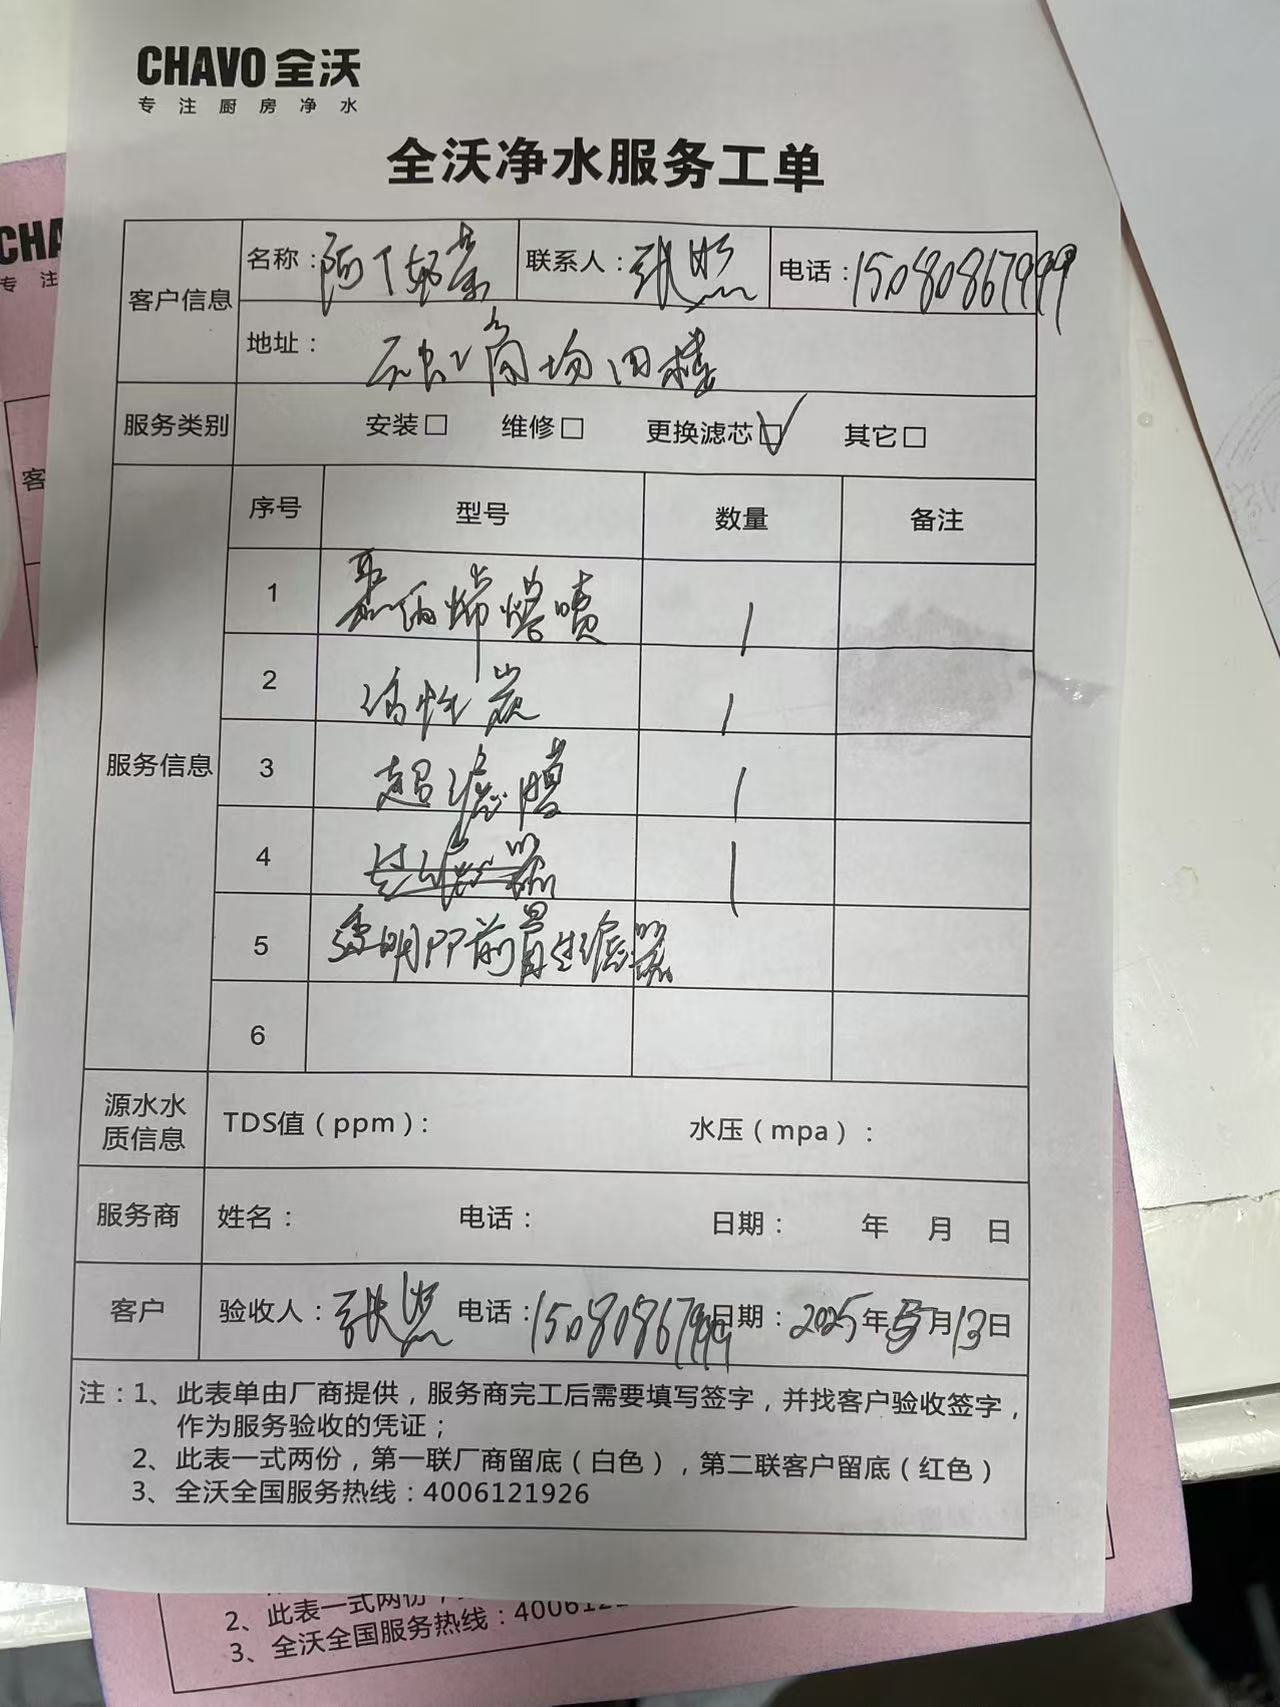 CHAVO 全沃
专注厨房净水
全沃净水服务工单
客户信息
名称：阿丁好茶 联系人：张照 电话：15080867999
地址： 商场四楼
服务类别 安装□ 维修□ 更换滤芯☑ 其它□
服务信息
序号 型号 数量 备注
1 聚丙烯熔喷 1
2 活性炭 1
3 超滤膜 1
4 过滤器 1
5 透明PP前置过滤器
6
源水水质信息 TDS值（ppm）： 水压（mpa）：
服务商 姓名： 电话： 日期： 年 月 日
客户 验收人：张照 电话：15080867999 日期：2025年5月13日
注：1、此表单由厂商提供，服务商完工后需要填写签字，并找客户验收签字，
作为服务验收的凭证；
2、此表一式两份，第一联厂商留底（白色），第二联客户留底（红色）
3、全沃全国服务热线：4006121926
CHA
专注
客
2、此表一式两份，
3、全沃全国服务热线：400612